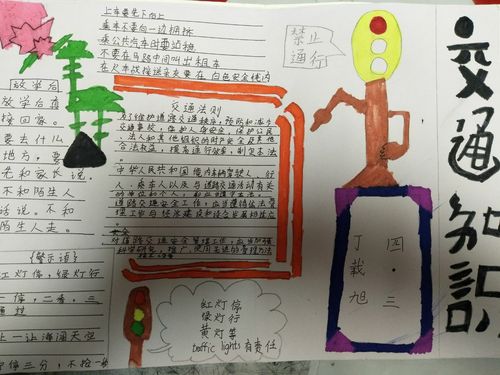 交通知识
禁止
通行
上车要先下后上
乘车不要向一边拥挤
乘公共汽车时要站稳
不要在马路中间叫出租车
在火车或接送亲友要在白色安全线内
放学后
放学后直
接回家。
要去什么
地方，要
先和家长说。
不和陌生人
话说。不和
陌生人走。
《警示语》
红灯停，绿灯行
一停，二看，三
通过
让一让海阔天空
宁停三分，不抢一秒
交通法则
为了维护道路交通秩序，预防和减少
交通事故，保护人身安全，保护公民
、法人和其他组织的财产安全及其他
合法权益，提高通行效率，制定本法
中华人民共和国境内车辆驾驶人，行
人，乘车人以及与道路交通活动有关
的单位和个人
道路交通安全工作，应当遵循依法管
安全
对道路交通安全管理工作，应当加强
科学研究，推广、使用先进的管理方法
红灯停
绿灯行
黄灯等
traffic lights 有责任
四·三
丁载旭